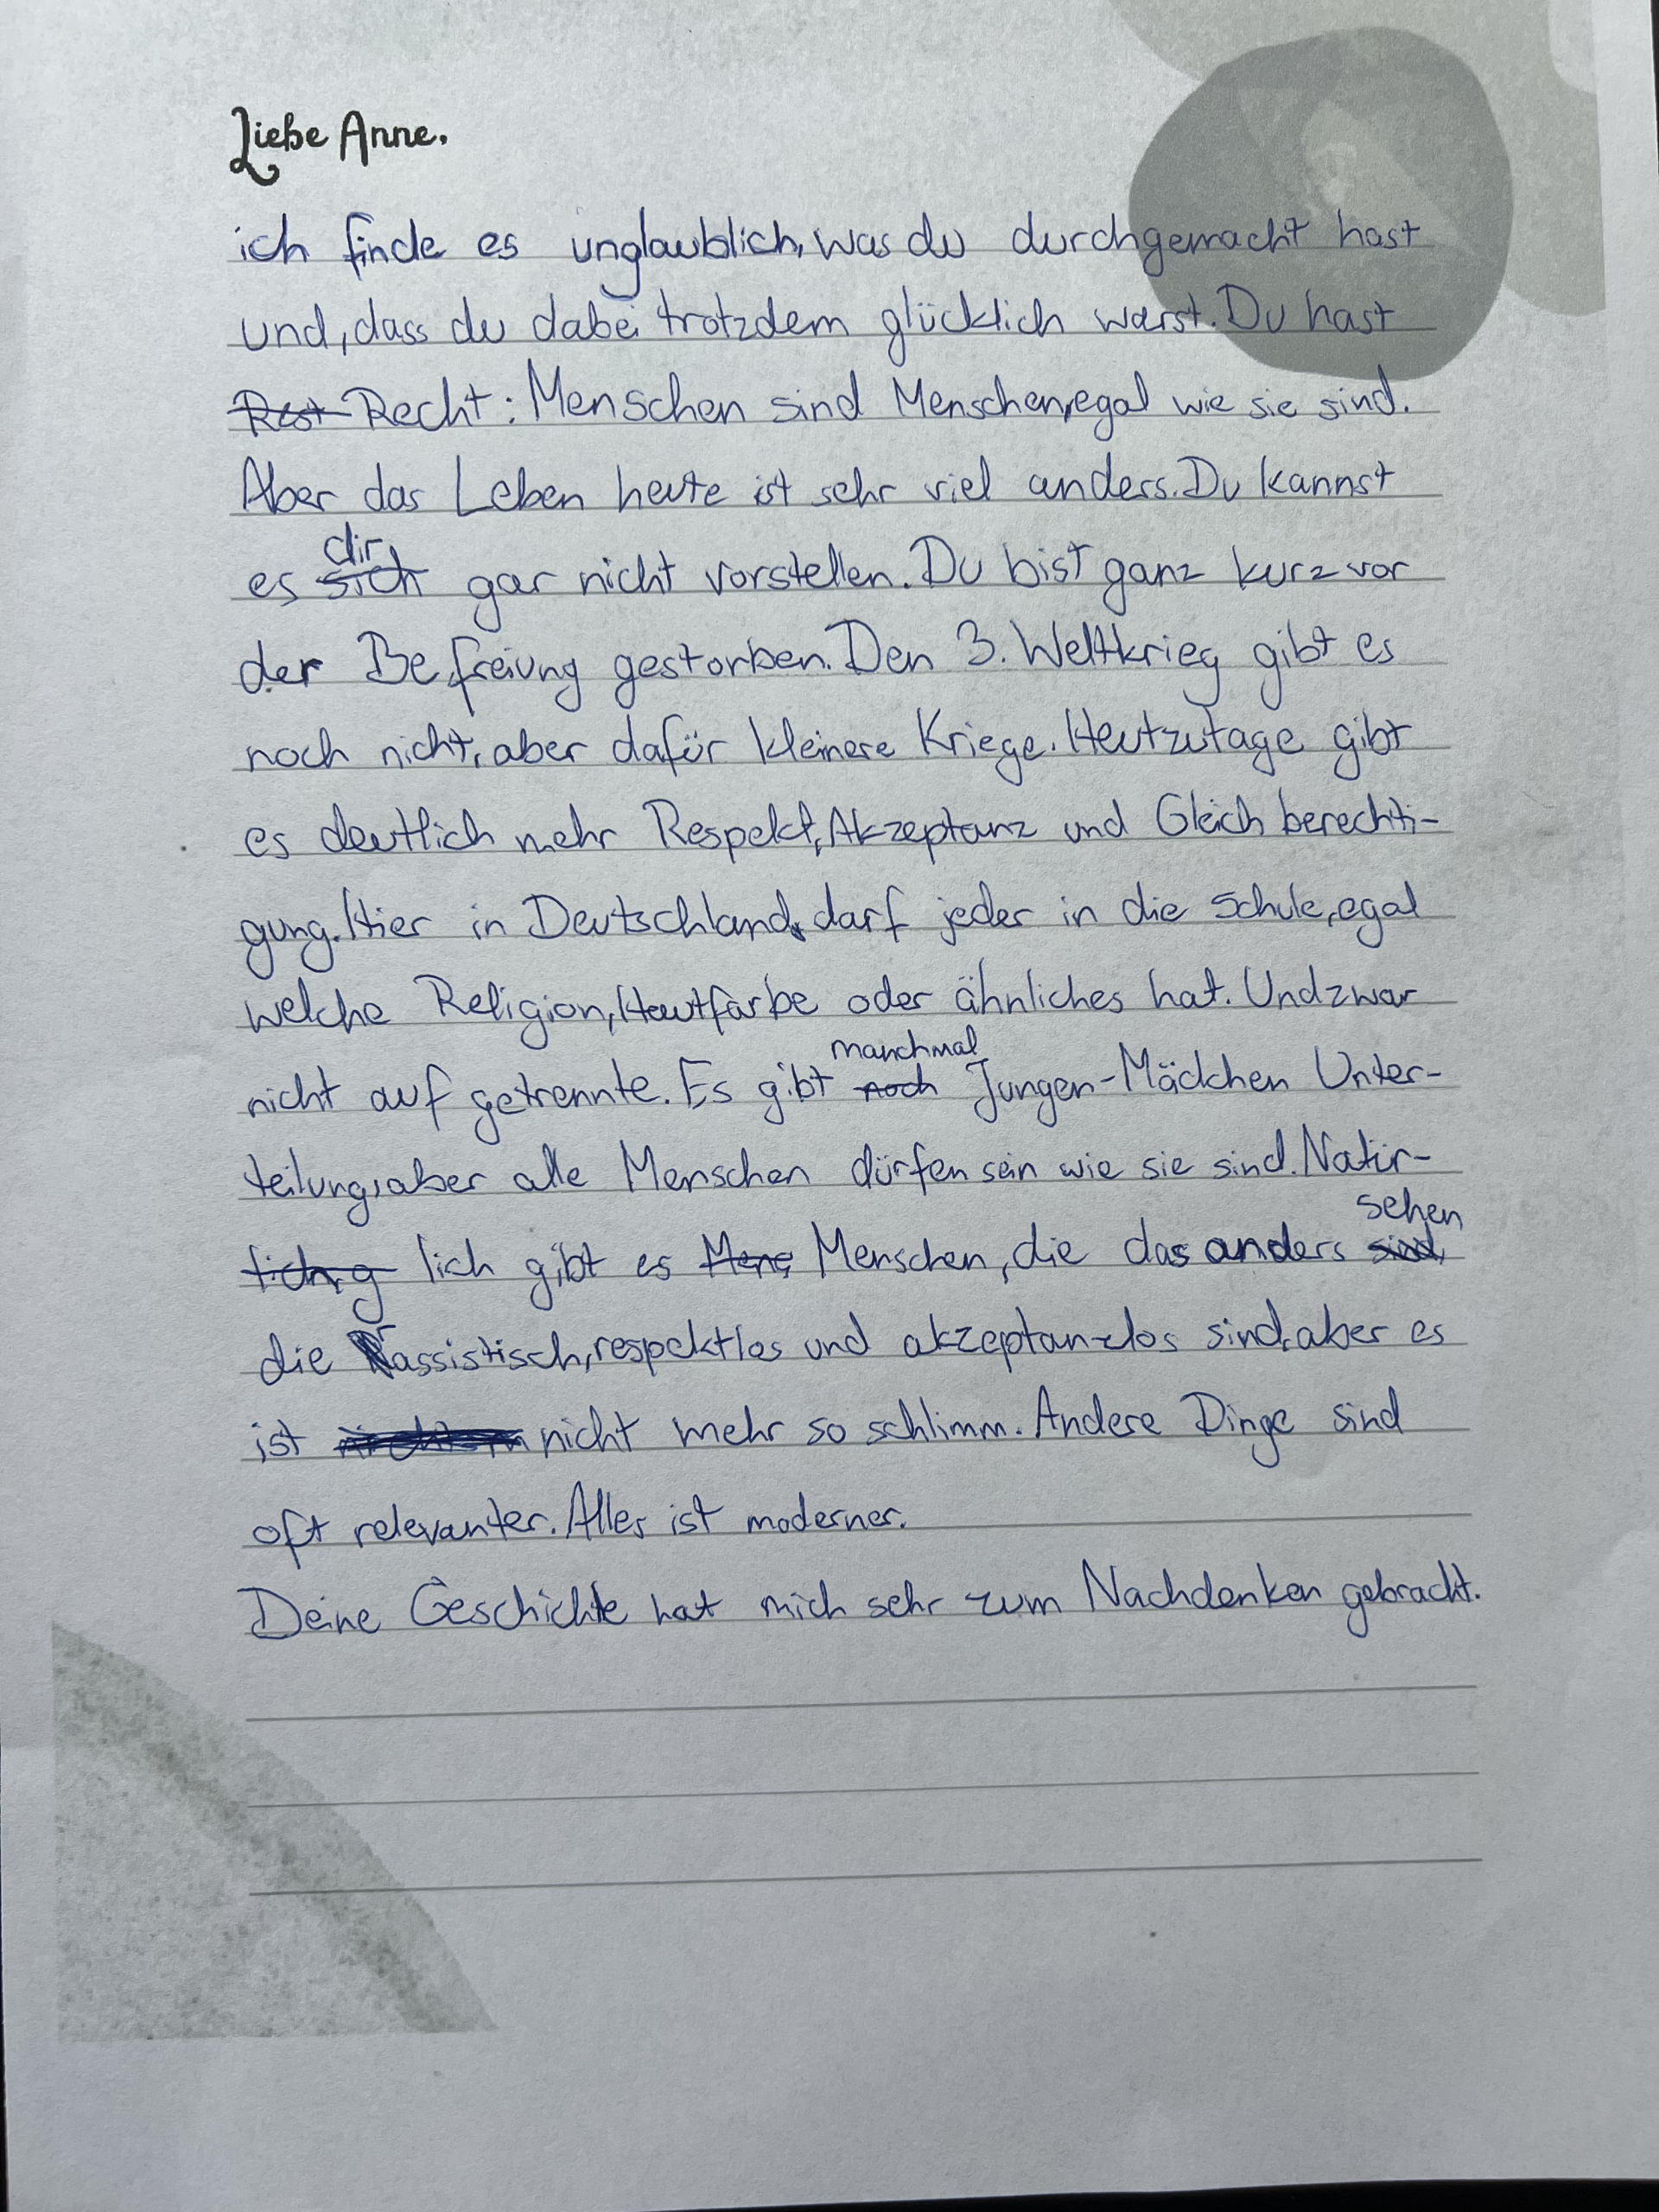 Liebe Anne,
ich finde es unglaublich, was du durchgemacht hast
und, dass du dabei trotzdem glücklich warst. Du hast
Rest Recht: Menschen sind Menschen, egal wie sie sind.
Aber das Leben heute ist sehr viel anders. Du kannst
dir
es sich gar nicht vorstellen. Du bist ganz kurz vor
der Befreiung gestorben. Den 3. Weltkrieg gibt es
noch nicht, aber dafür kleinere Kriege. Heutzutage gibt
es deutlich mehr Respekt, Akzeptanz und Gleichberechti-
gung. Hier in Deutschland darf jeder in die Schule, egal
welche Religion, Hautfarbe oder ähnliches hat. Und zwar
manchmal
nicht auf getrennte. Es gibt noch Jungen-Mädchen Unter-
teilung, aber alle Menschen dürfen sein wie sie sind. Natür-
sehen
lich gibt es Mens Menschen, die das anders sind,
die rassistisch, respektlos und akzeptanzlos sind, aber es
ist nicht mehr so schlimm. Andere Dinge sind
oft relevanter. Alles ist moderner.
Deine Geschichte hat mich sehr zum Nachdenken gebracht.